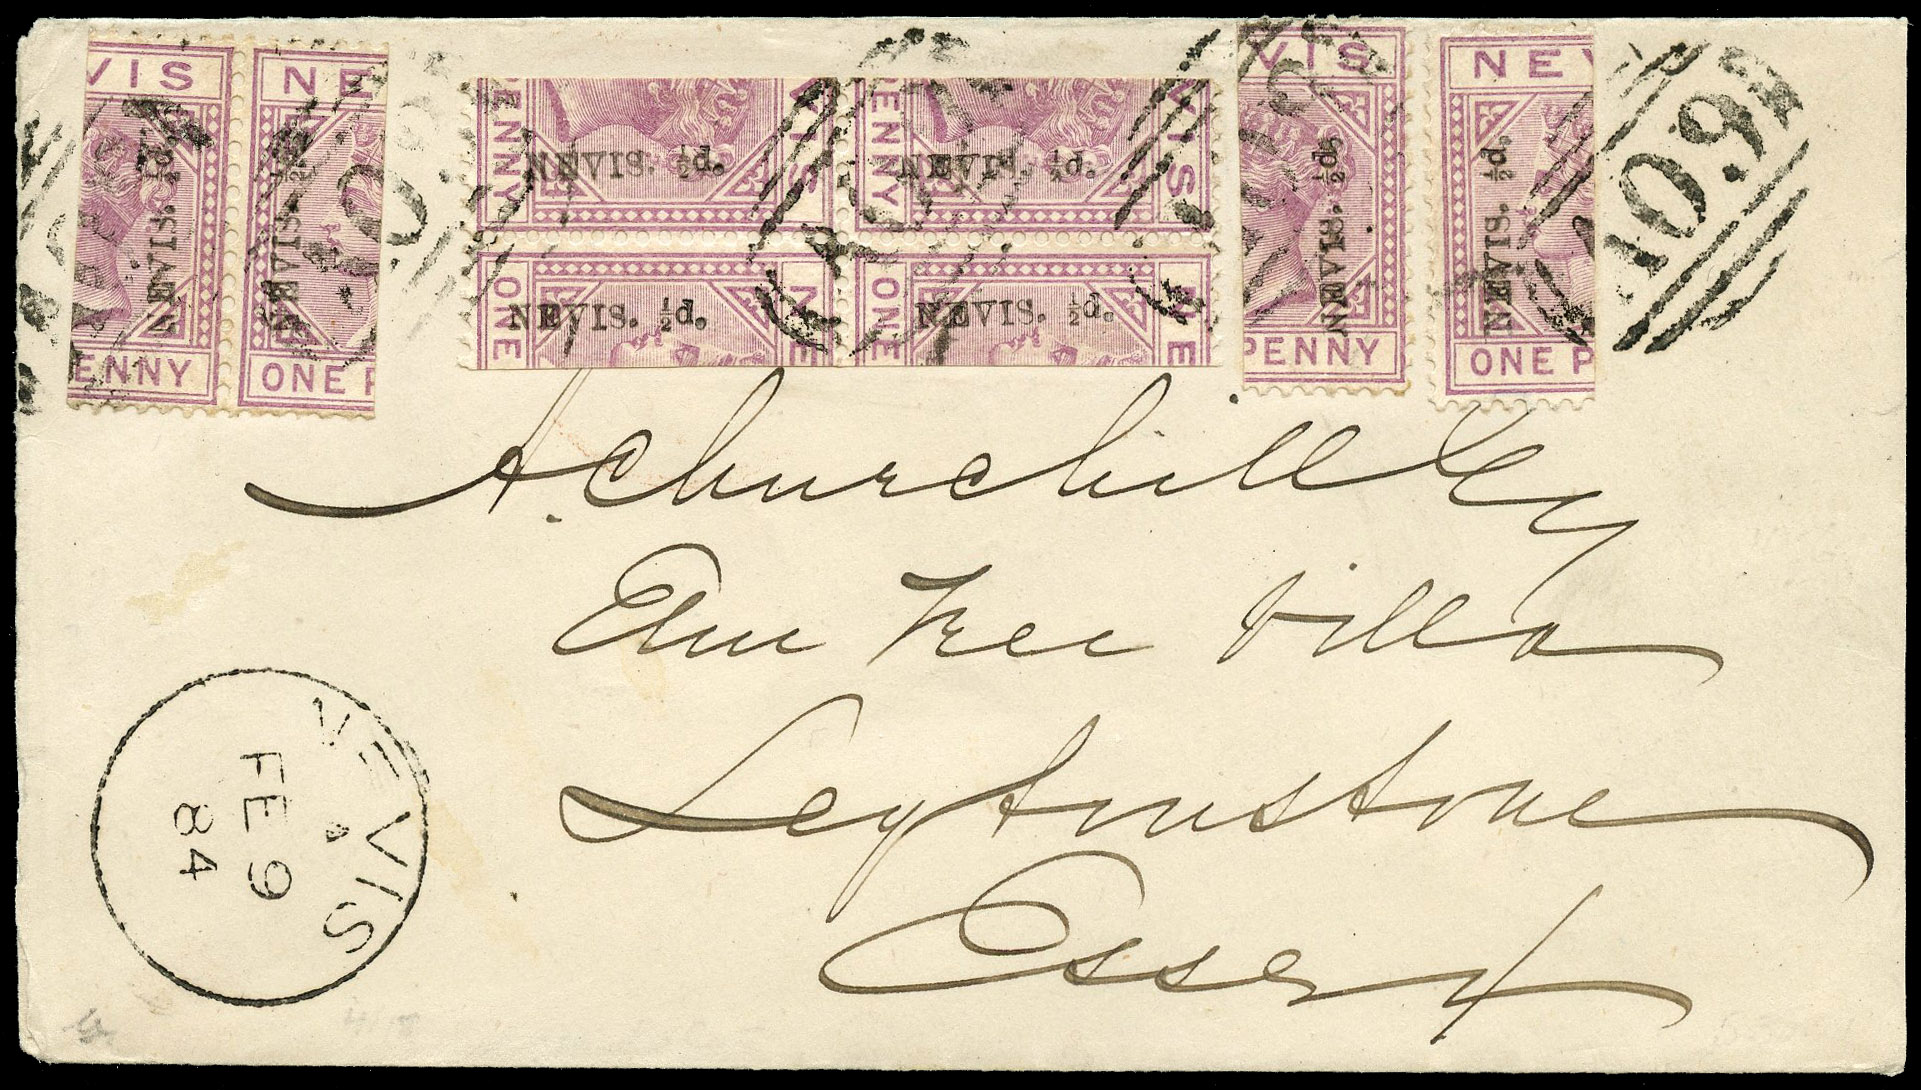 VIS
NEVIS. ½d.
ENNY
NE
NEVIS. ½d.
ONE P
PENNY
NEVIS. ½d.
VIS
PENNY
NEVIS. ½d.
VIS
ONE
NEVIS. ½d.
NE
ONE
NEVIS. ½d.
NE
VIS
NEVIS. ½d.
PENNY
NEV
NEVIS. ½d.
ONE P
A09
A. Churchill Esq
Elm Tree Villa
Leytonstone
Essex
NEVIS
A
FE 9
84